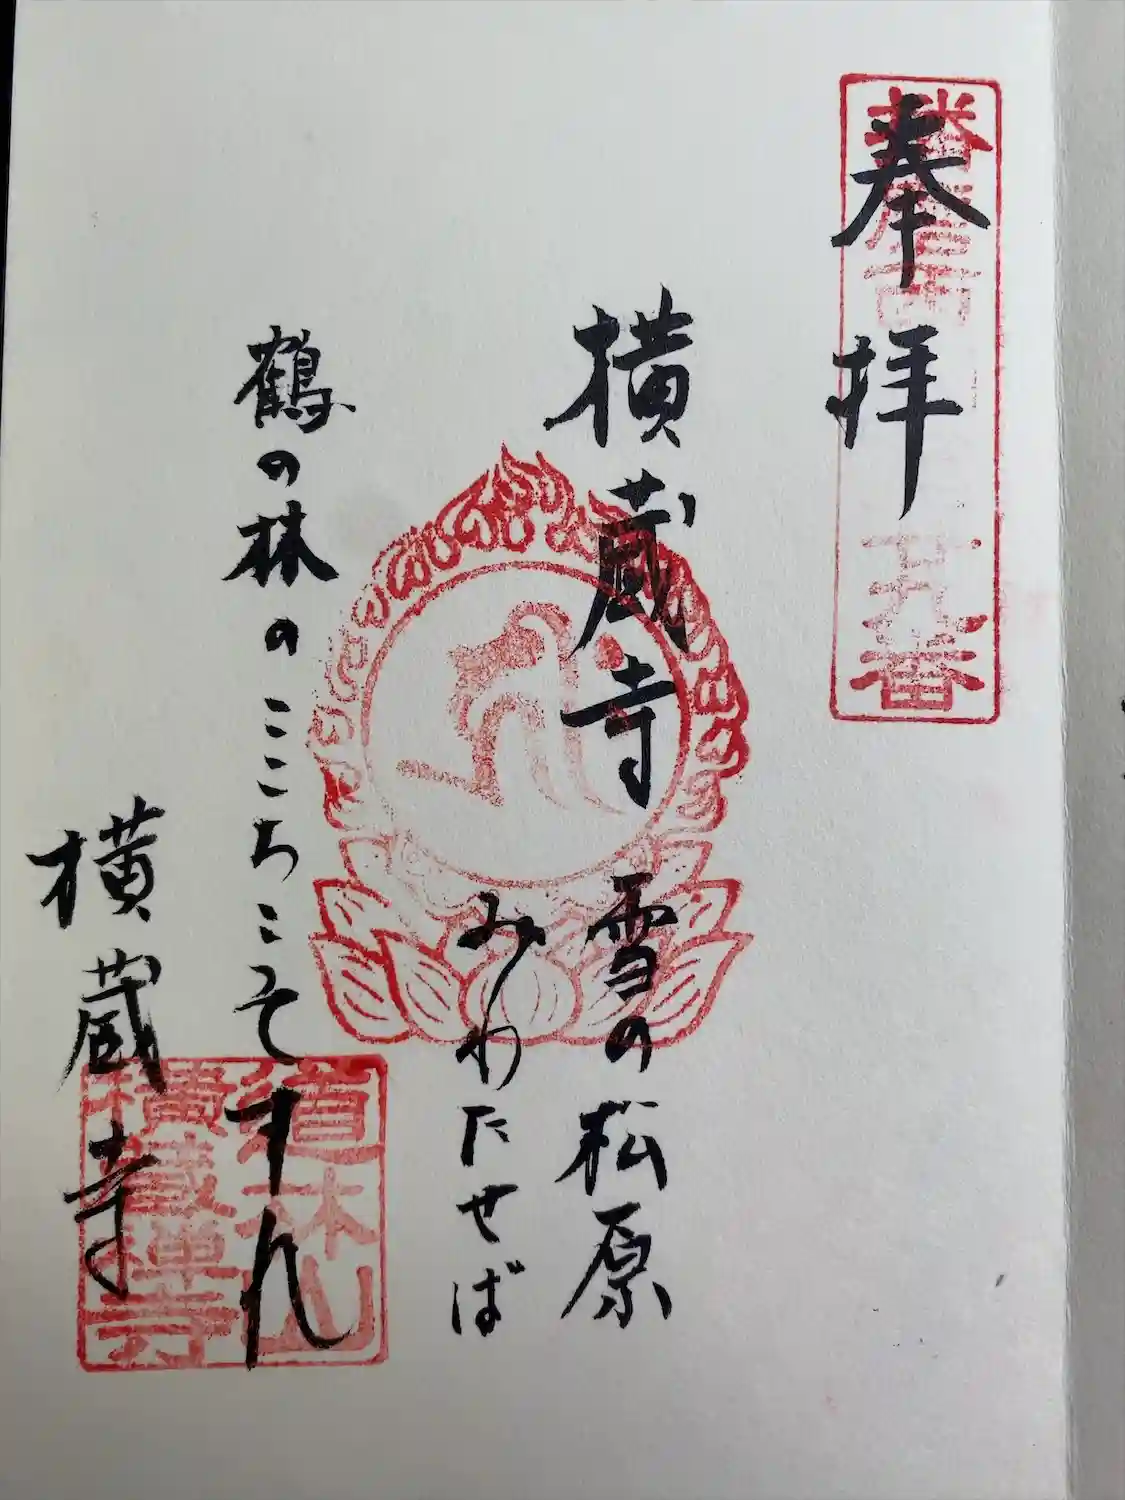 奉拝
播磨西国
廿九番
横蔵寺 雪の松原
みわたせば
鶴の林の こころこそすれ
横蔵寺
道林山
横蔵禅寺